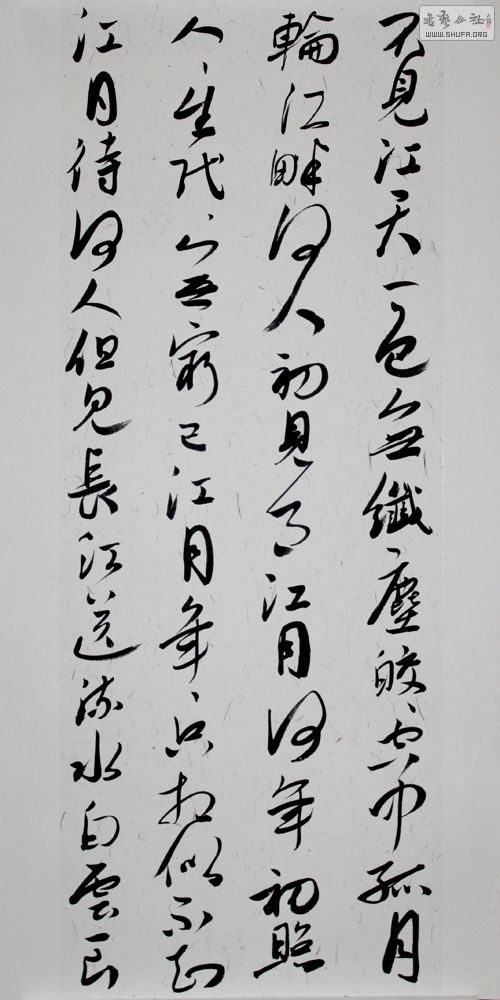 不見江天一色無纖塵皎、空中孤月
輪江畔何人初見月江月何年初照
人、生代、無窮已江月年、只相似不知
江月待何人但見長江送流水白雲一片
書藝公社
WWW.SHUFA.ORG